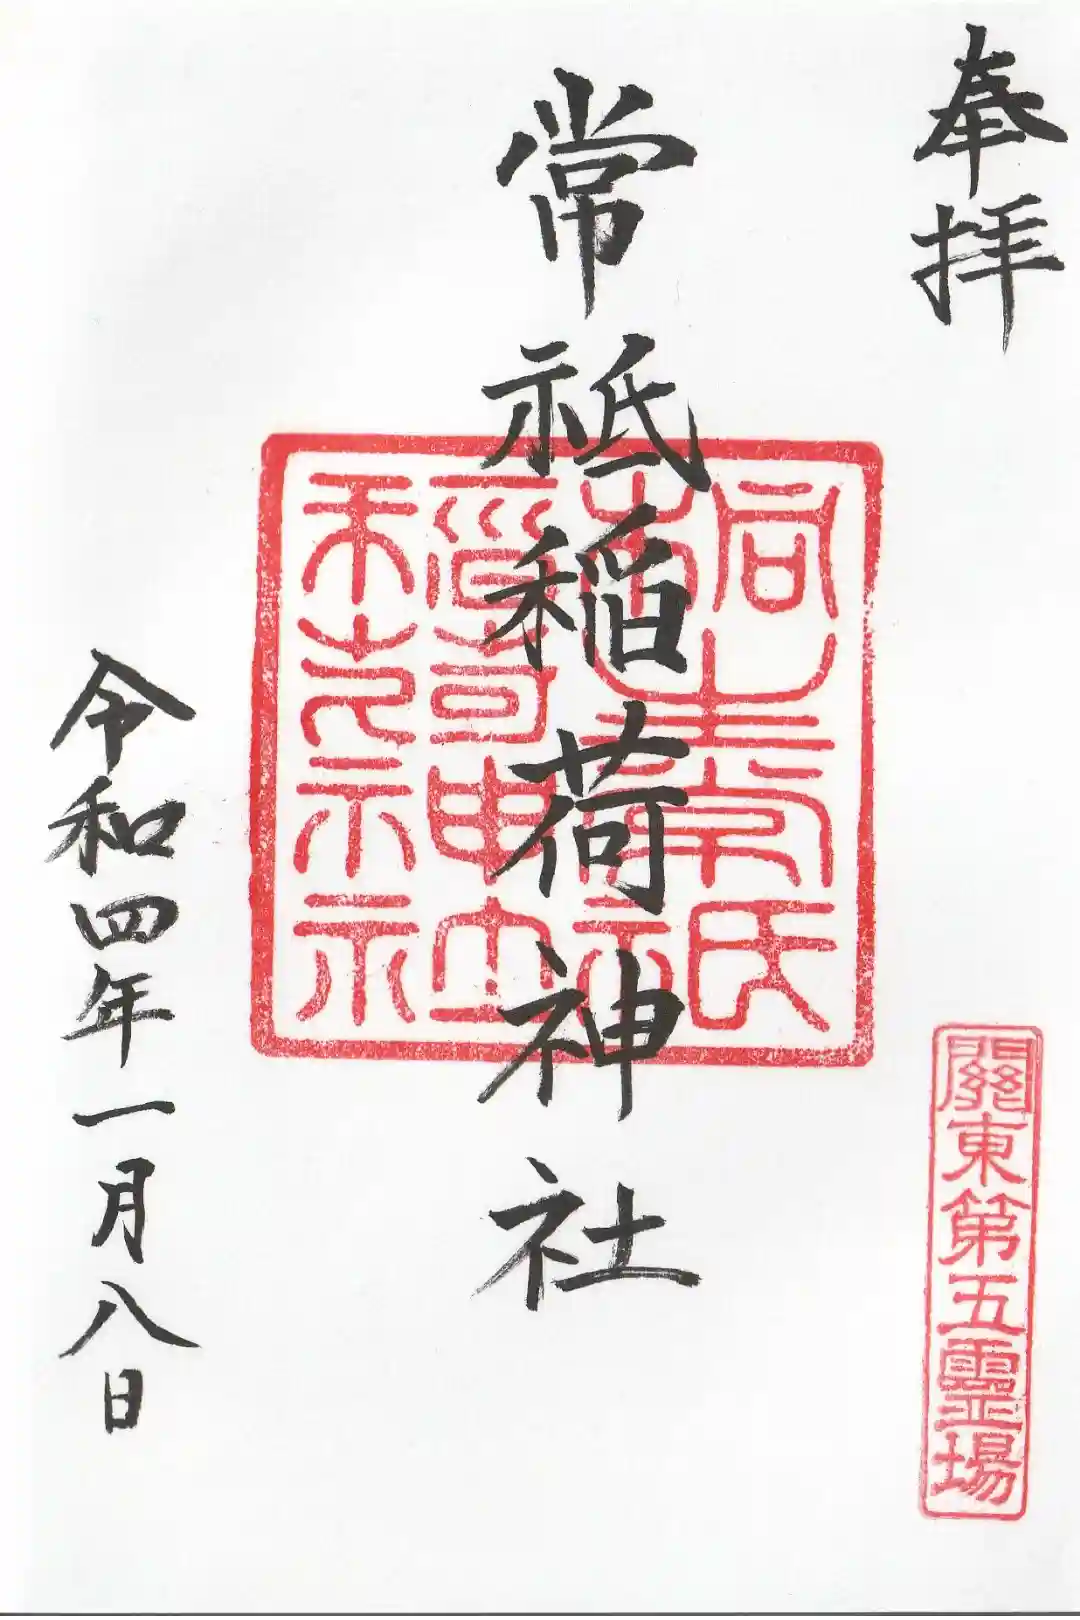 奉拝
關東第五靈場
常祇稲荷神社
令和四年一月八日